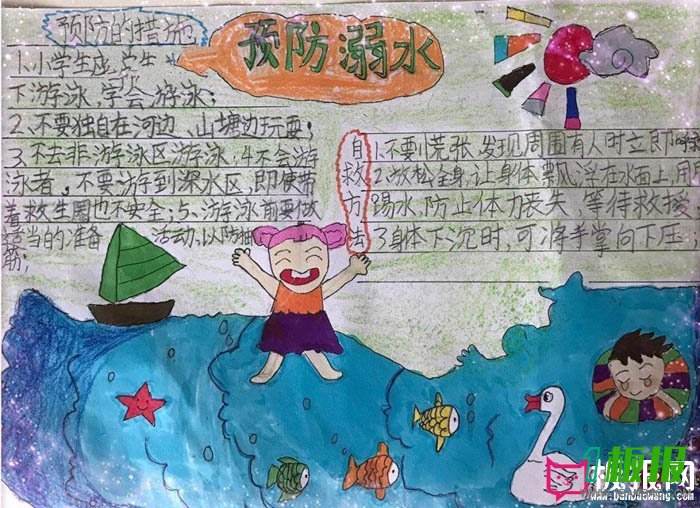 预防溺水
预防的措施
1.小学生应
下游泳,学会游泳;
2、不要独自在河边、山塘边玩耍;
3、不去非游泳区游泳,4不会游
泳者,不要游到深水区,即使带
着救生圈也不安全;5、游泳前要做
适当的准备 活动,以防抽
筋;
自救方法
1.不要慌张,发现周围有人时立即
2.放松全身,让身体飘浮在水面上,用
踢水,防止体力丧失,等待救援
3身体下沉时,可将手掌向下压
板报
板报网
www.banbaowang.com